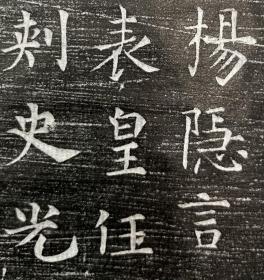 楊隱言
表皇任
刺史光